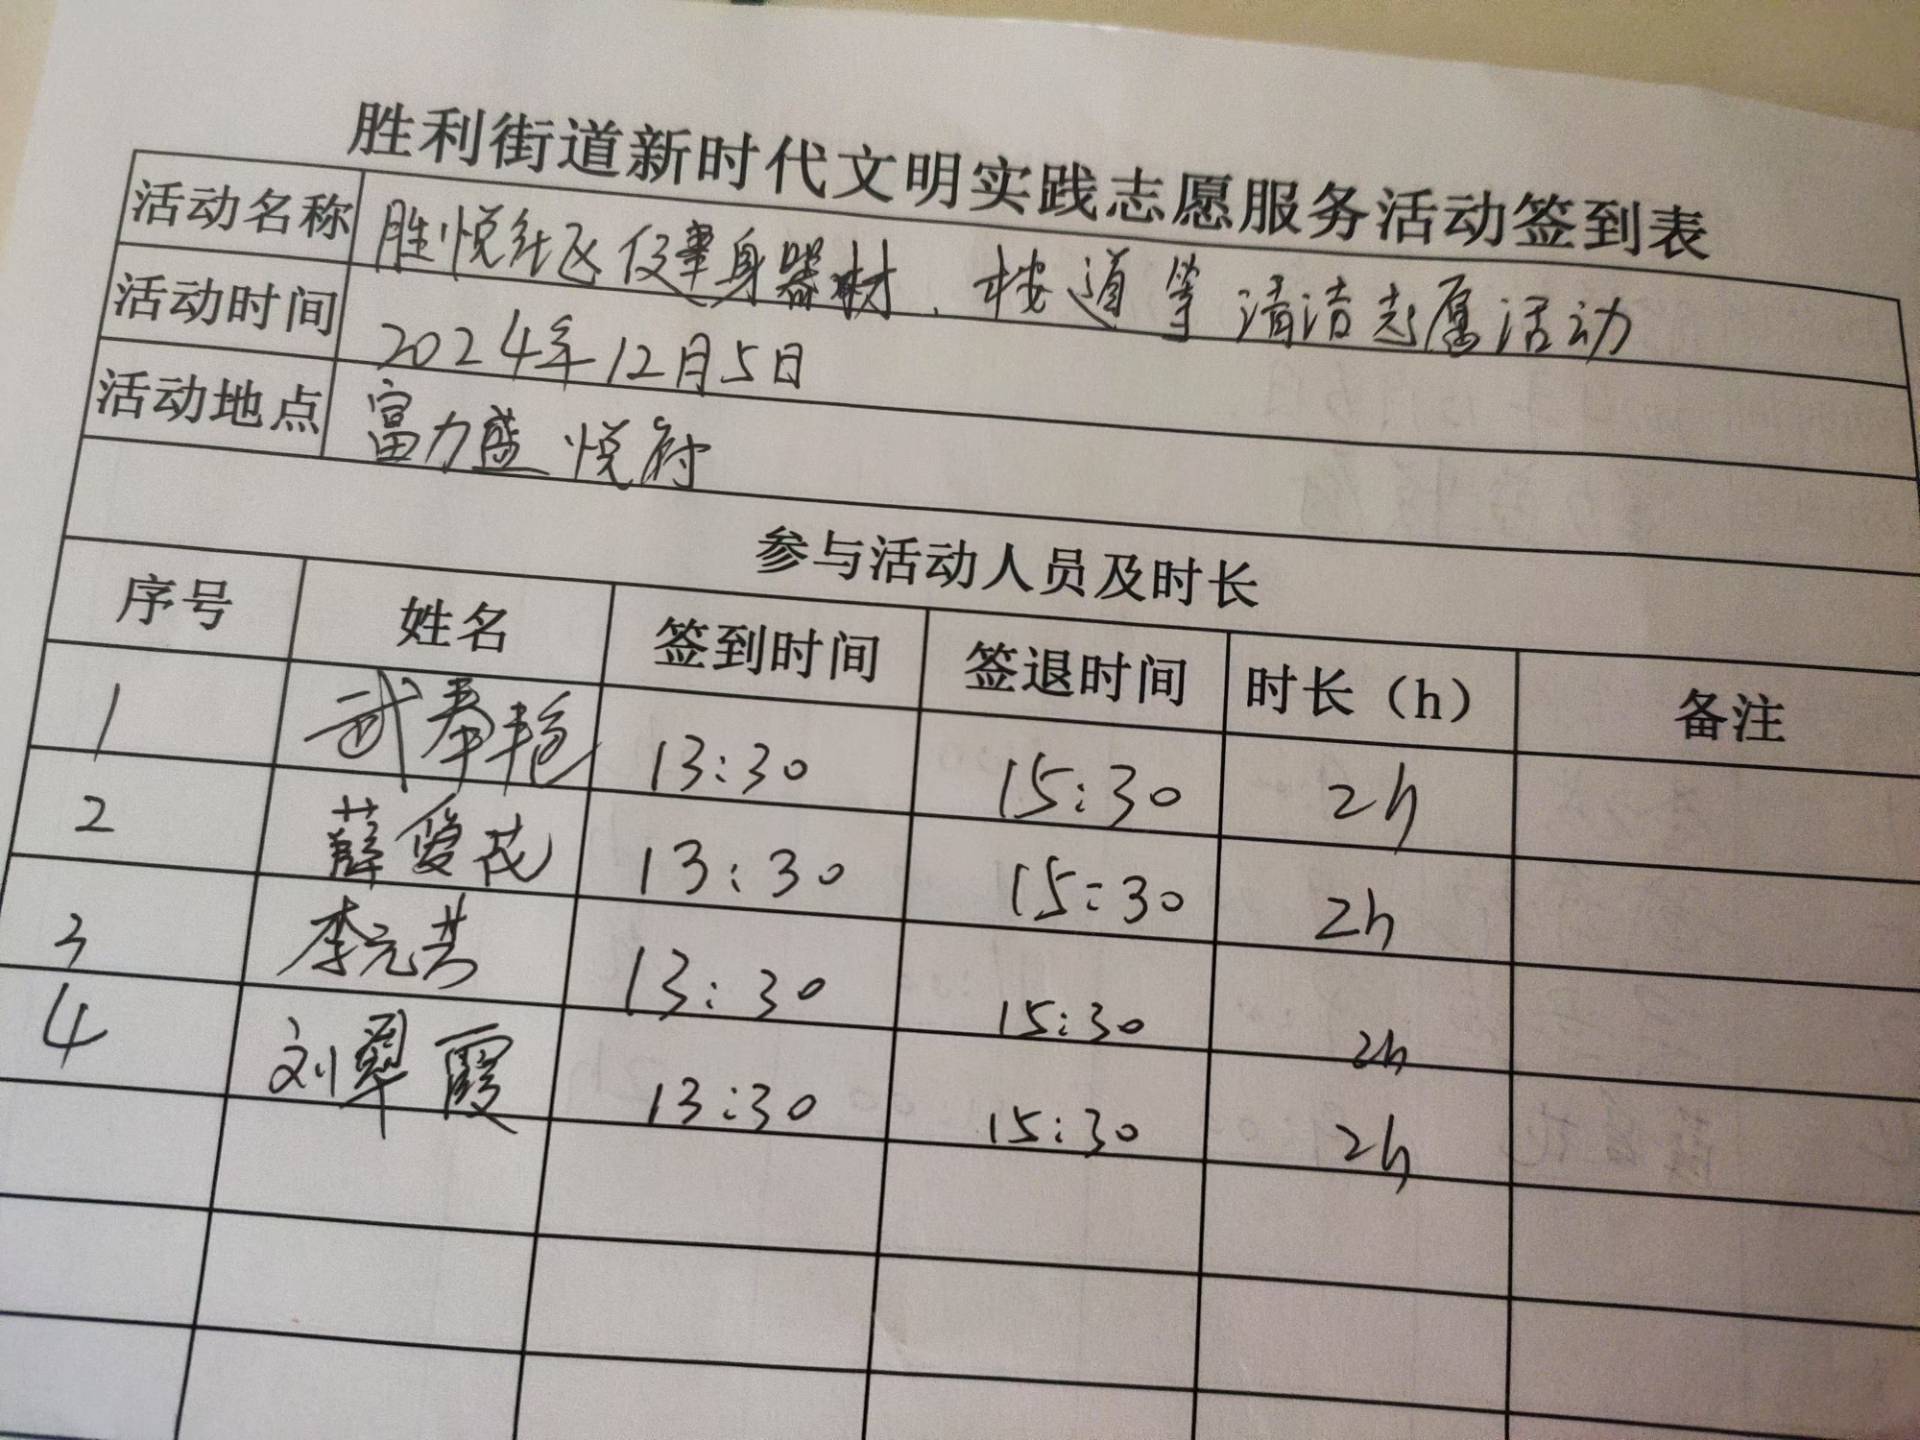 胜利街道新时代文明实践志愿服务活动签到表
活动名称 胜悦社区健身器材、桉道等清洁志愿活动
活动时间 2024年12月5日
活动地点 富力盛悦府
参与活动人员及时长
序号 姓名 签到时间 签退时间 时长（h） 备注
1 武奉艳 13:30 15:30 2h
2 薛爱花 13:30 15:30 2h
3 李元芳 13:30 15:30 2h
4 刘翠霞 13:30 15:30 2h